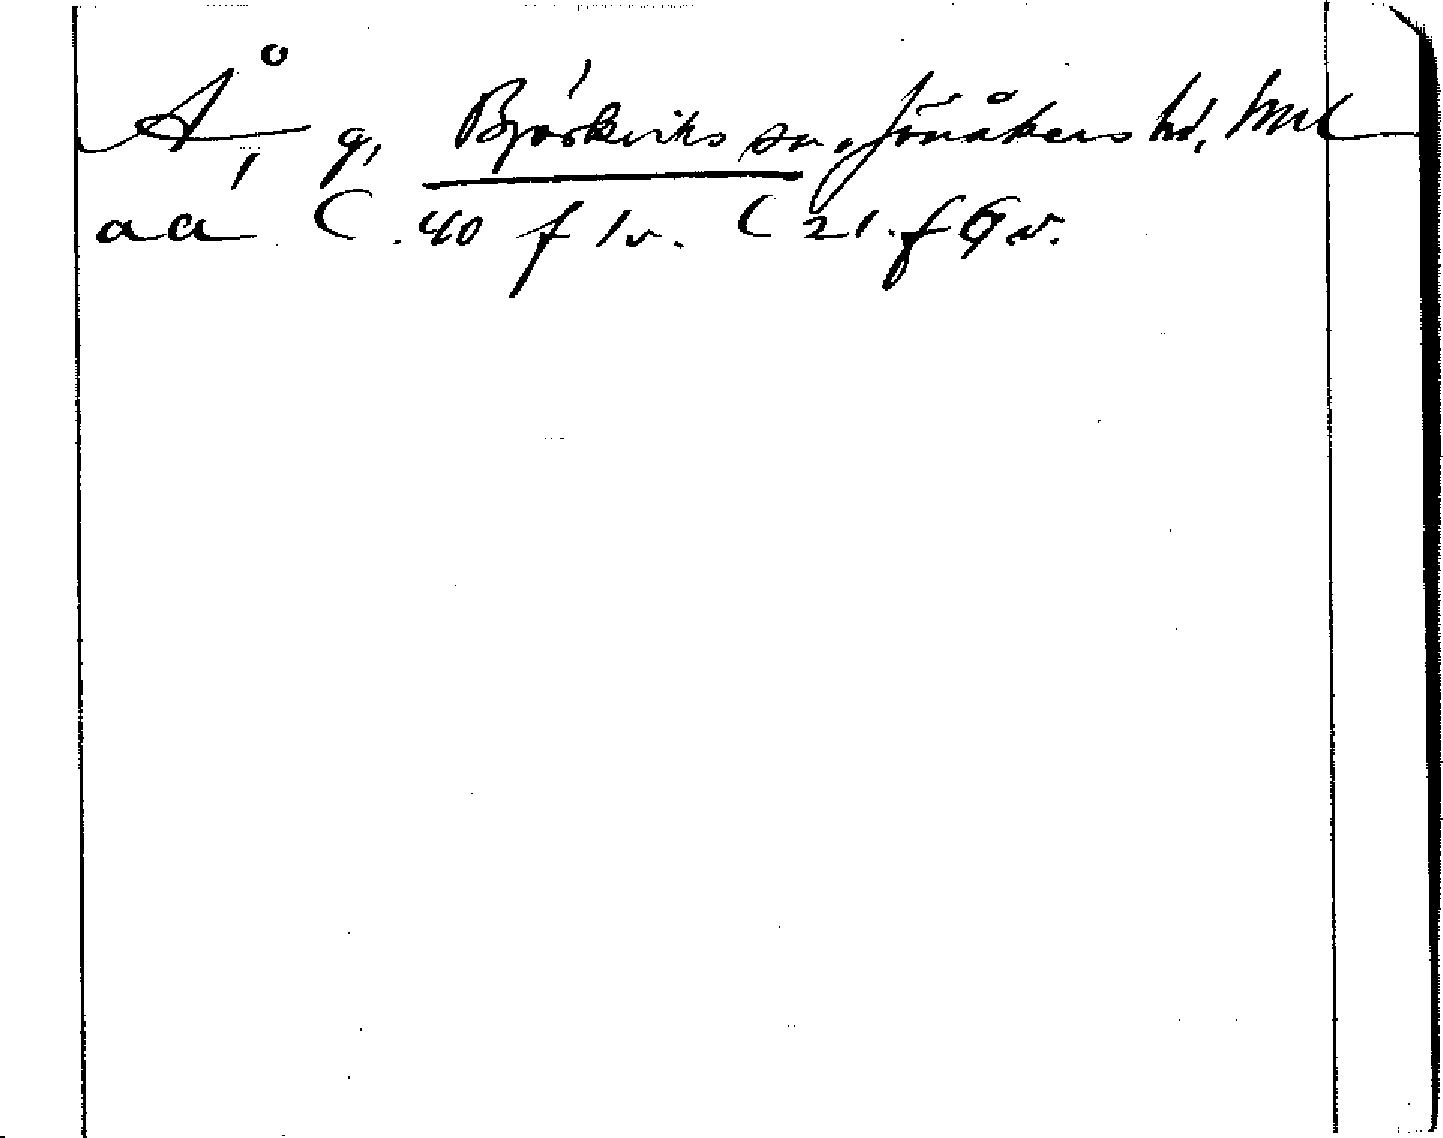 Å, g, Björkviks sn, Jönåkers hd, Sml
aa C. 40 f 1v. C 21. f 9 v.